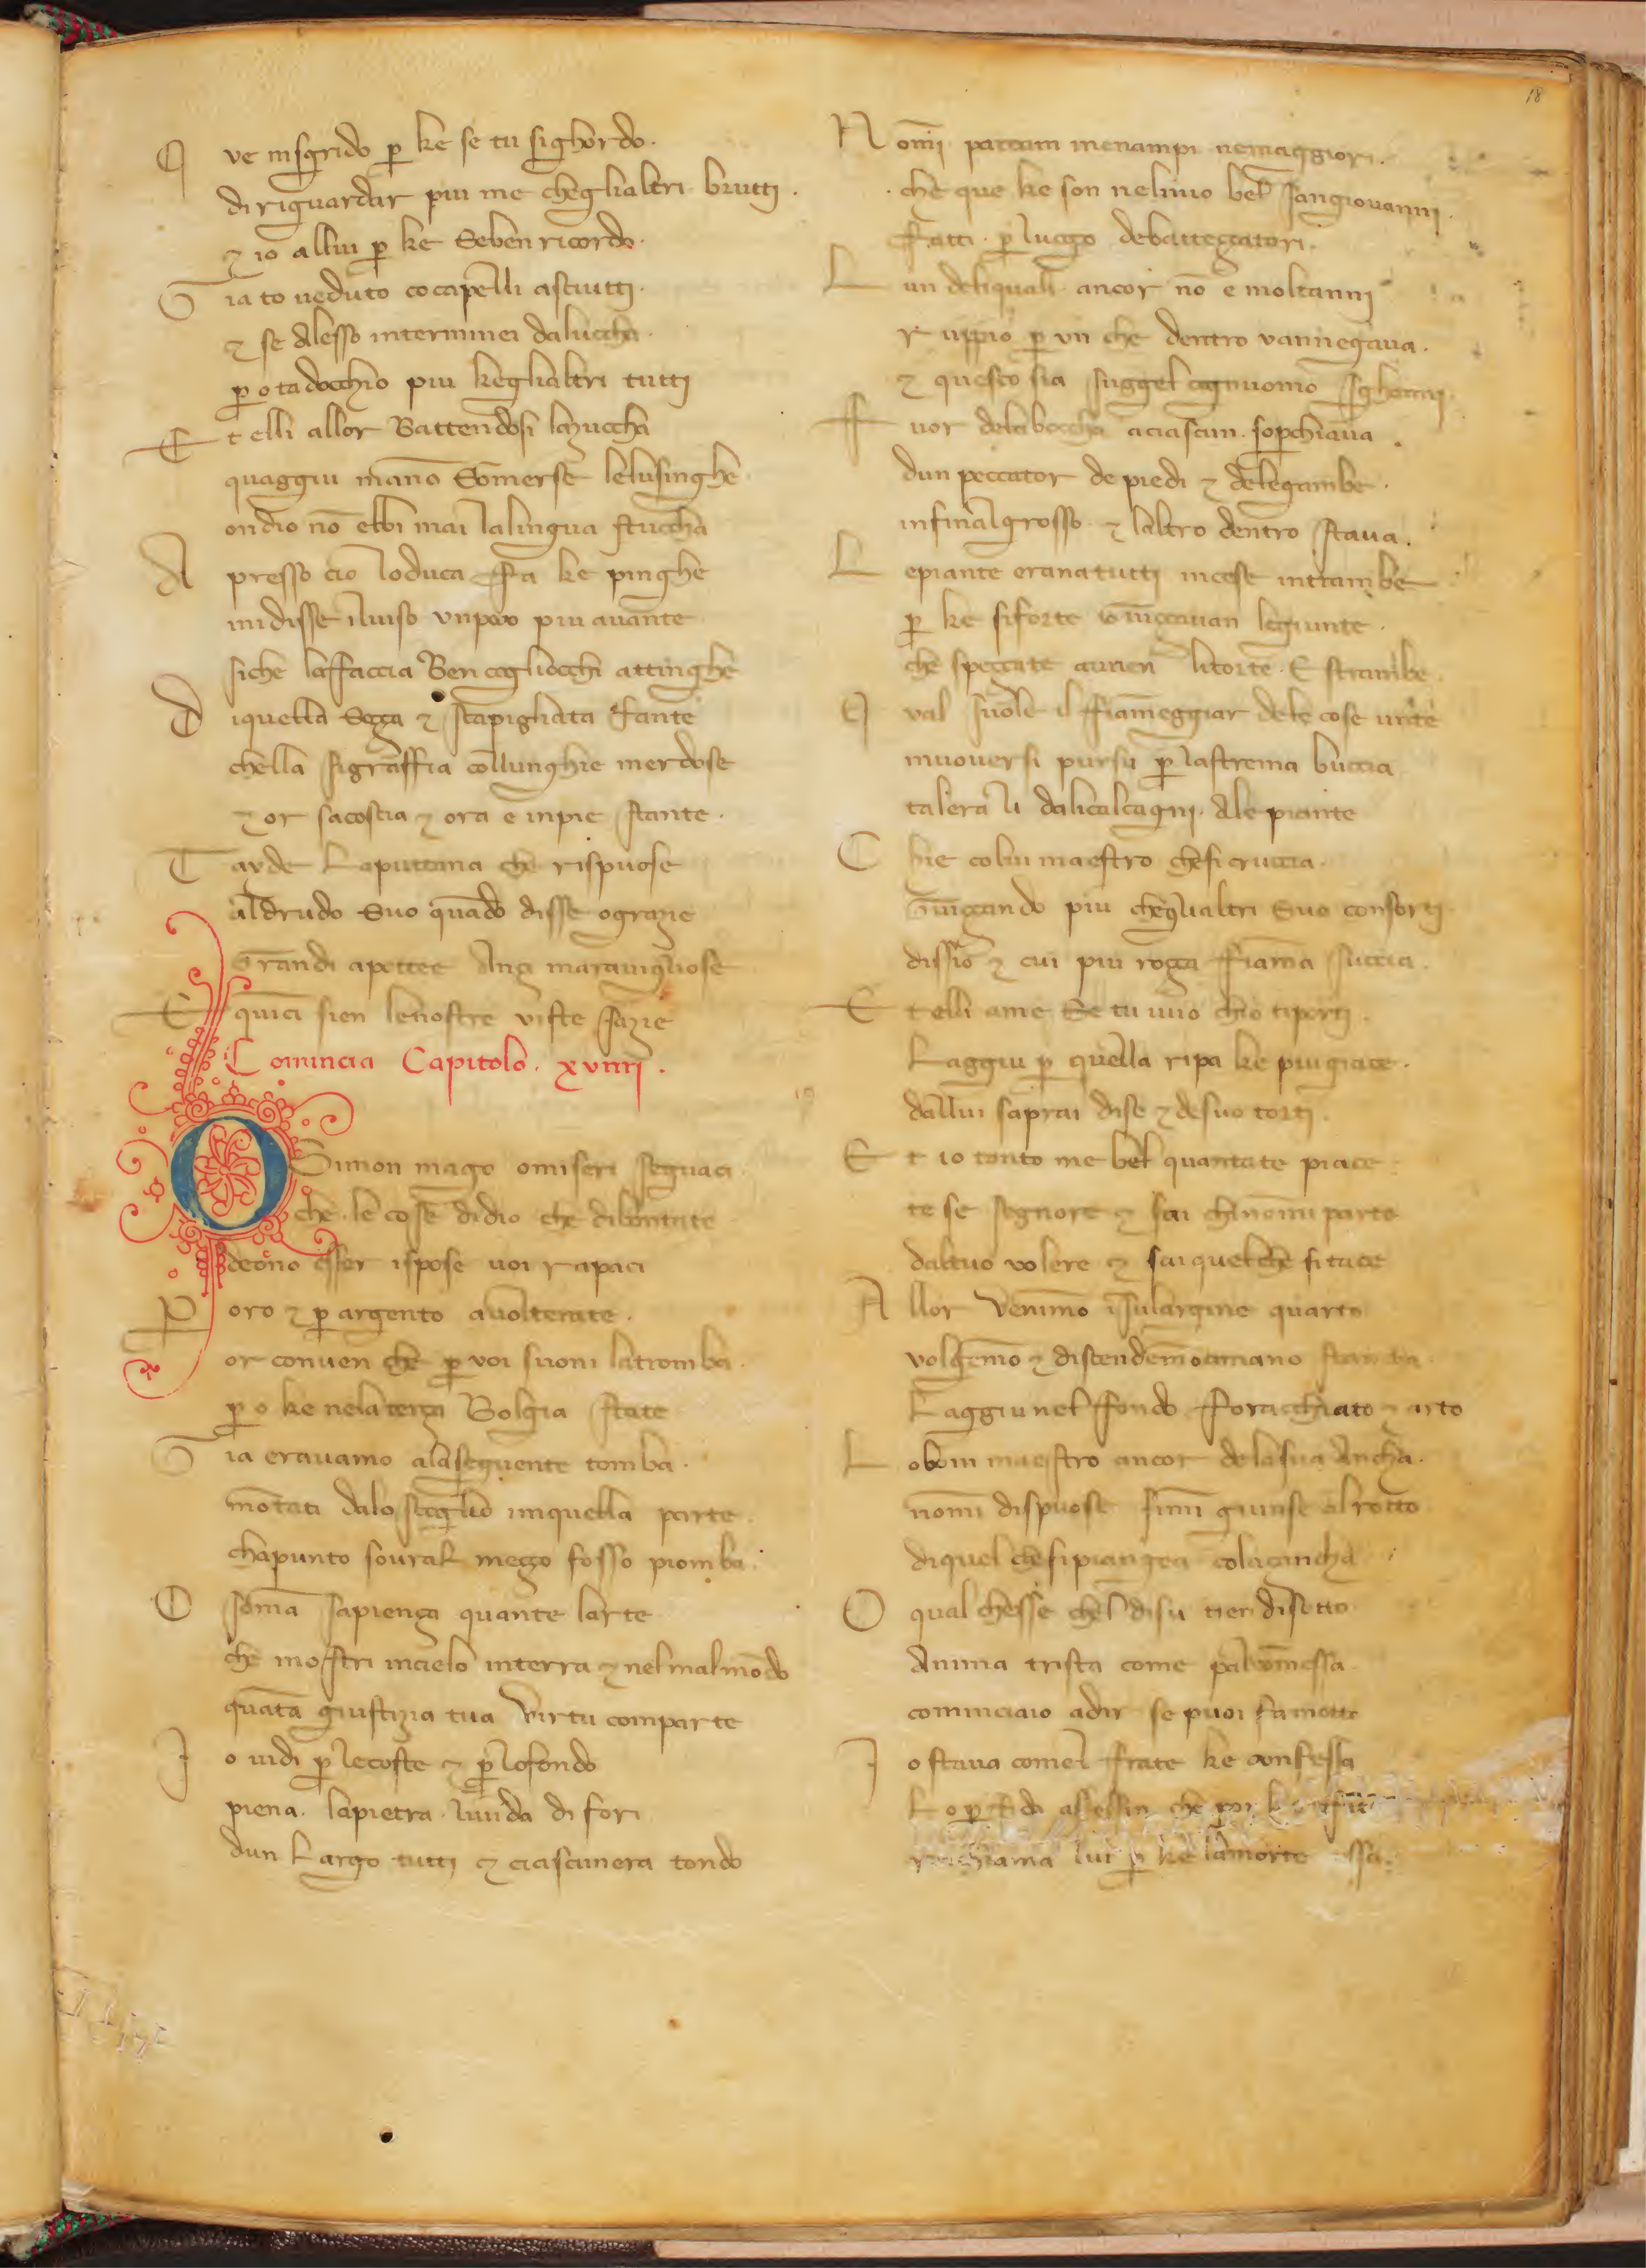 18
Q ve misgrido p̱ ke se tu sighordo.
diriguardar piu me cheglialtri brutti.
⁊ io allui p̱ ke Seben ricordo.
G ia to ueduto cocapelli asciutti.
⁊ se Alesso interminei dalucchа.
p̱ o tadocchio piu keglialtri tutti
E t elli allor Battendosi lazuccha
quaggiu māno Somerse lelusinghe
ondio nō ebbi mai lalingua stuccha
A presso cio loduca Fa ke pinghe
mi disse iluiso vnpoco piu auante
siche laffaccia Ben cogliocchi attinghe
D iquella Soçça ⁊ scapigliata Fante
chella sigraffia collunghie merdose
⁊ or sacoscia ⁊ ora e inpie stante.
T ayde Laputtana che rispuose
aldrudo Suo quādo disse ograzie
Grandi apottee Ançi marauigliose
E quici sien lenostre viste sazie
Comincia Capitolo. xviiij.
O Simon mago omiseri seguaci.
che. le cose didio che dibontate
deōno esser ispose uoi rapaci
P oro ⁊ p̱ argento auolterate.
or conuen che p̱ voi suoni latromba.
p̱ o ke nelaterça Bolgia state
G ia erauamo alaseguente tomba.
mōtati dalo scoglio inquella parte.
chapunto soural meçço fosso piomba.
O sōma sapiença quante larte
che mostri incielo interra ⁊ nelmalmōdo
quāta giustizia tua virtu comparte
I o uidi p̱ lecoste ⁊ p̱ lofondo
piena. lapietra. liuida di fori
dun Largo tutti ⁊ ciascunera tondo
N omi paream menampi nemaggiori.
che que ke son nelmio bel sangiouanni.
Fatti. p̱ luogo debatteççatori.
L un deliquali ancor nō e moltanni
r uppio p̱ vn che dentro vanniegaua.
⁊ questo sia suggel ognuomo sghanni.
F uor delaboccha aciascun. sop̱chiaua.
dun peccator de piedi ⁊ delegambe.
infinalgrosso. ⁊ laltro dentro staua.
L epiante eranatutti incese intrambe
p̱ ke siforte Guiççauan legiunte.
che speççate aurien litorte. E strambe.
Q val suole il Fiāmeggiar dele cose unte
muouersi pursu p̱ lastrema buccia
talera li dalicalcagni. Ale piante
C hie colui maestro chesicruccia.
Guiççando piu cheglialtri Suo consorti.
dissio ⁊ cui piu roçça Fiāma succia.
E t elli ame Se tu uuo chio tiporti.
Laggiu p̱ quella ripa ke piugiace.
dallui saprai dise ⁊ desuo torti.
E t io tanto me bel quantate piace
te se segnore ⁊ sai chinōmi parto
daltuo volere ⁊ sai quelche si tace
A llor Venimo isulargine quarto
volgemo ⁊ discendemo amano stancha.
Laggiu nel Fondo Foracchiato ⁊ arto
L obom maestro ancor delasua Ancha.
nomi dispuose simi giunse alrotto
diquel chesipiangea colaçancha
O qual chesse chel disu tien disotto
Anima trista come palcomessa.
cominciaio adir se puoi Famotto
I o staua comel Frate ke confessa
Lo p̱Fido assessin che poi k
richiama lui p̱ ke lamorte